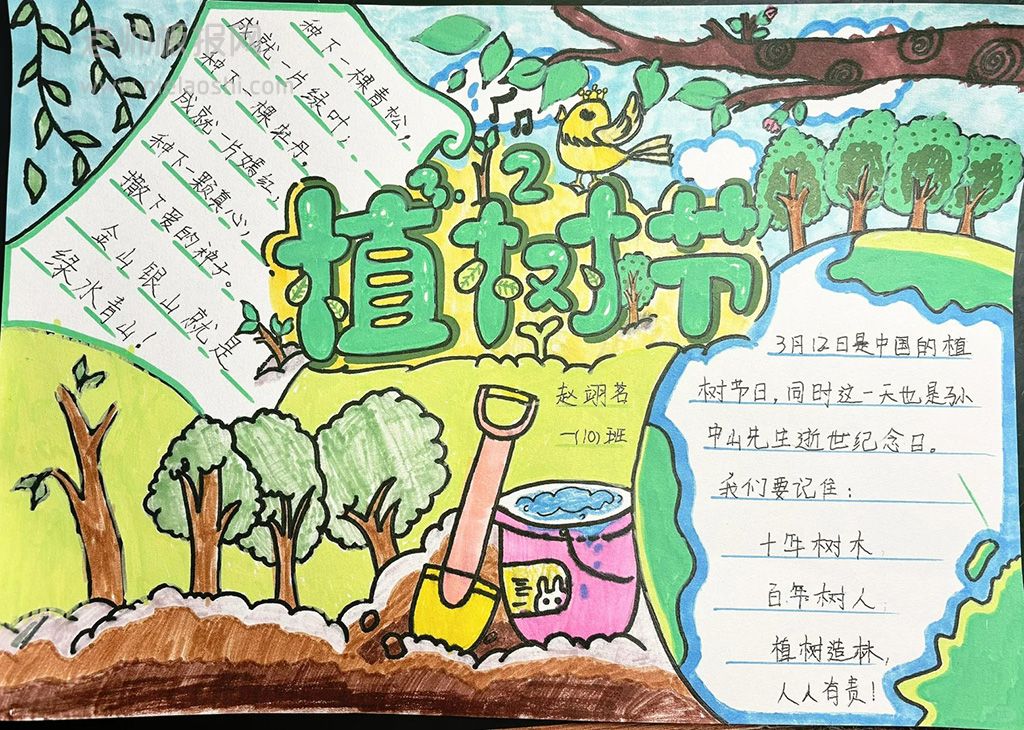 种下一棵青松，
成就一片绿叶；
种下一棵牡丹，
成就一片嫣红，
种下一颗真心，
撒下爱的种子。
金山银山就是
绿水青山！
植树节
赵翊茗
一(10)班
3月12日是中国的植
树节日，同时这一天也是孙
中山先生逝世纪念日。
我们要记住：
十年树木
百年树人
植树造林，
人人有责！